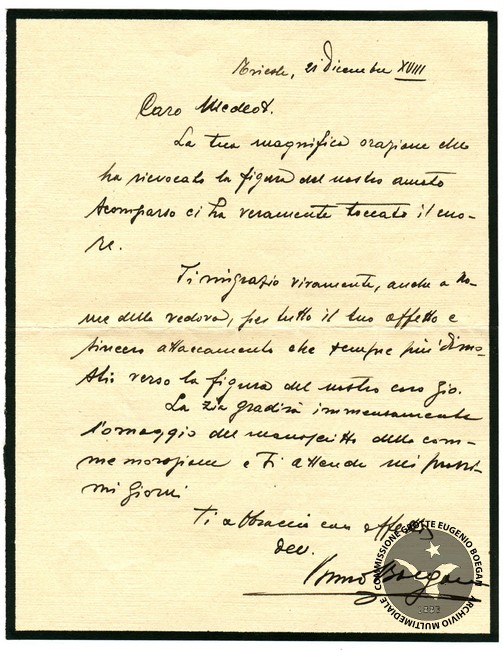 Trieste, 21 Dicembre XVIII
Caro Medeot.
La tua magnifica orazione che
ha rievocato la figura del nostro amato
scomparso ci ha veramente toccato il cuo-
re.
Ti ringrazio vivamente, anche a no-
me della vedova, per tutto il tuo affetto e
sincero attaccamento che sempre più dimo-
stri verso la figura del nostro caro zio.
La zia gradirà immensamente
l'omaggio del manoscritto della com-
memorazione e Ti attende nei prossi-
mi giorni
Ti abbraccia con affetto
dev.
Bruno Boegan
COMMISSIONE GROTTE EUGENIO BOEGAN
ARCHIVIO MULTIMEDIALE
1883